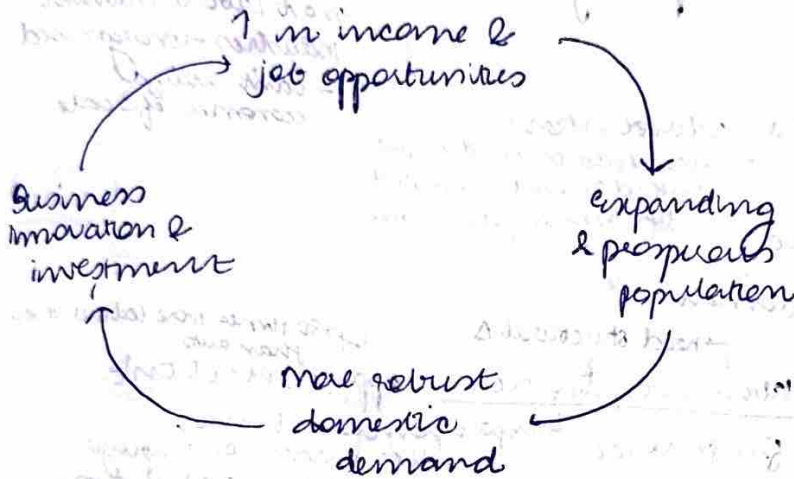 ↑ in income &
job opportunities
Expanding
& prosperous
population
More robust
domestic
demand
Business
innovation &
investment